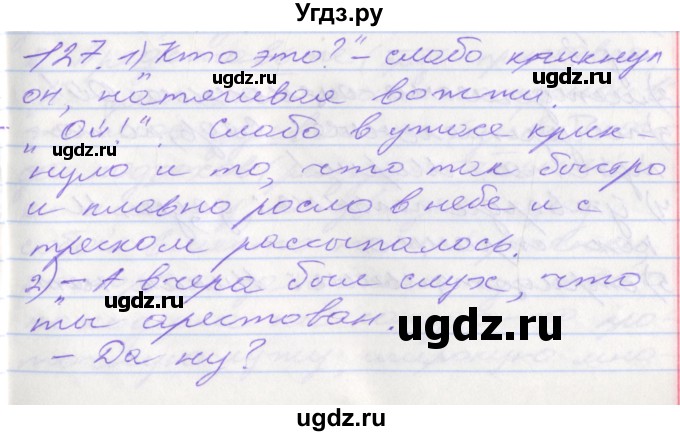 Угдз.ру
127. 1) Кто это?" – слабо крикнул
ugdz.ru ugdz.ru
он, натягивая вожжи.
"Ой!". Слабо в ужасе крик-
ugdz.ru
нуло и то, что так быстро
и плавно росло в небе и с
ugdz.ru
треском рассыпалось.
2) – А вчера был слух, что
ugdz.ru
ты арестован.
ugdz.ru
– Да ну?
ugdz.ru
ugdz.ru